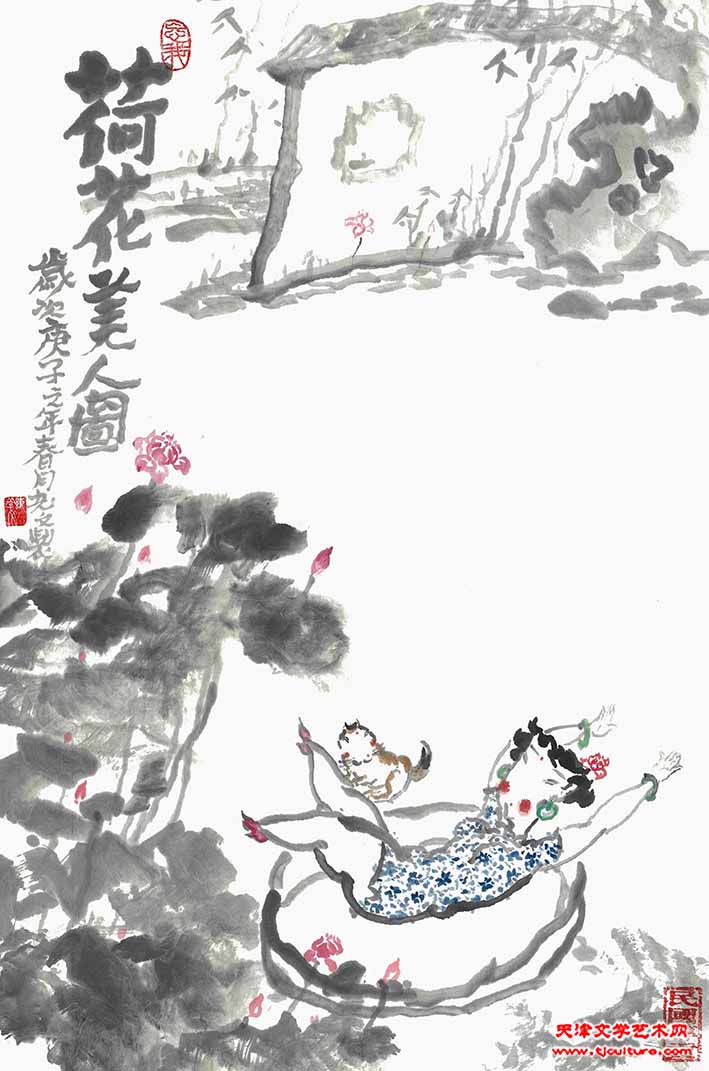 荷花美人图
歲次庚子之年春月九文製
天津文学艺术网
www.tjculture.com